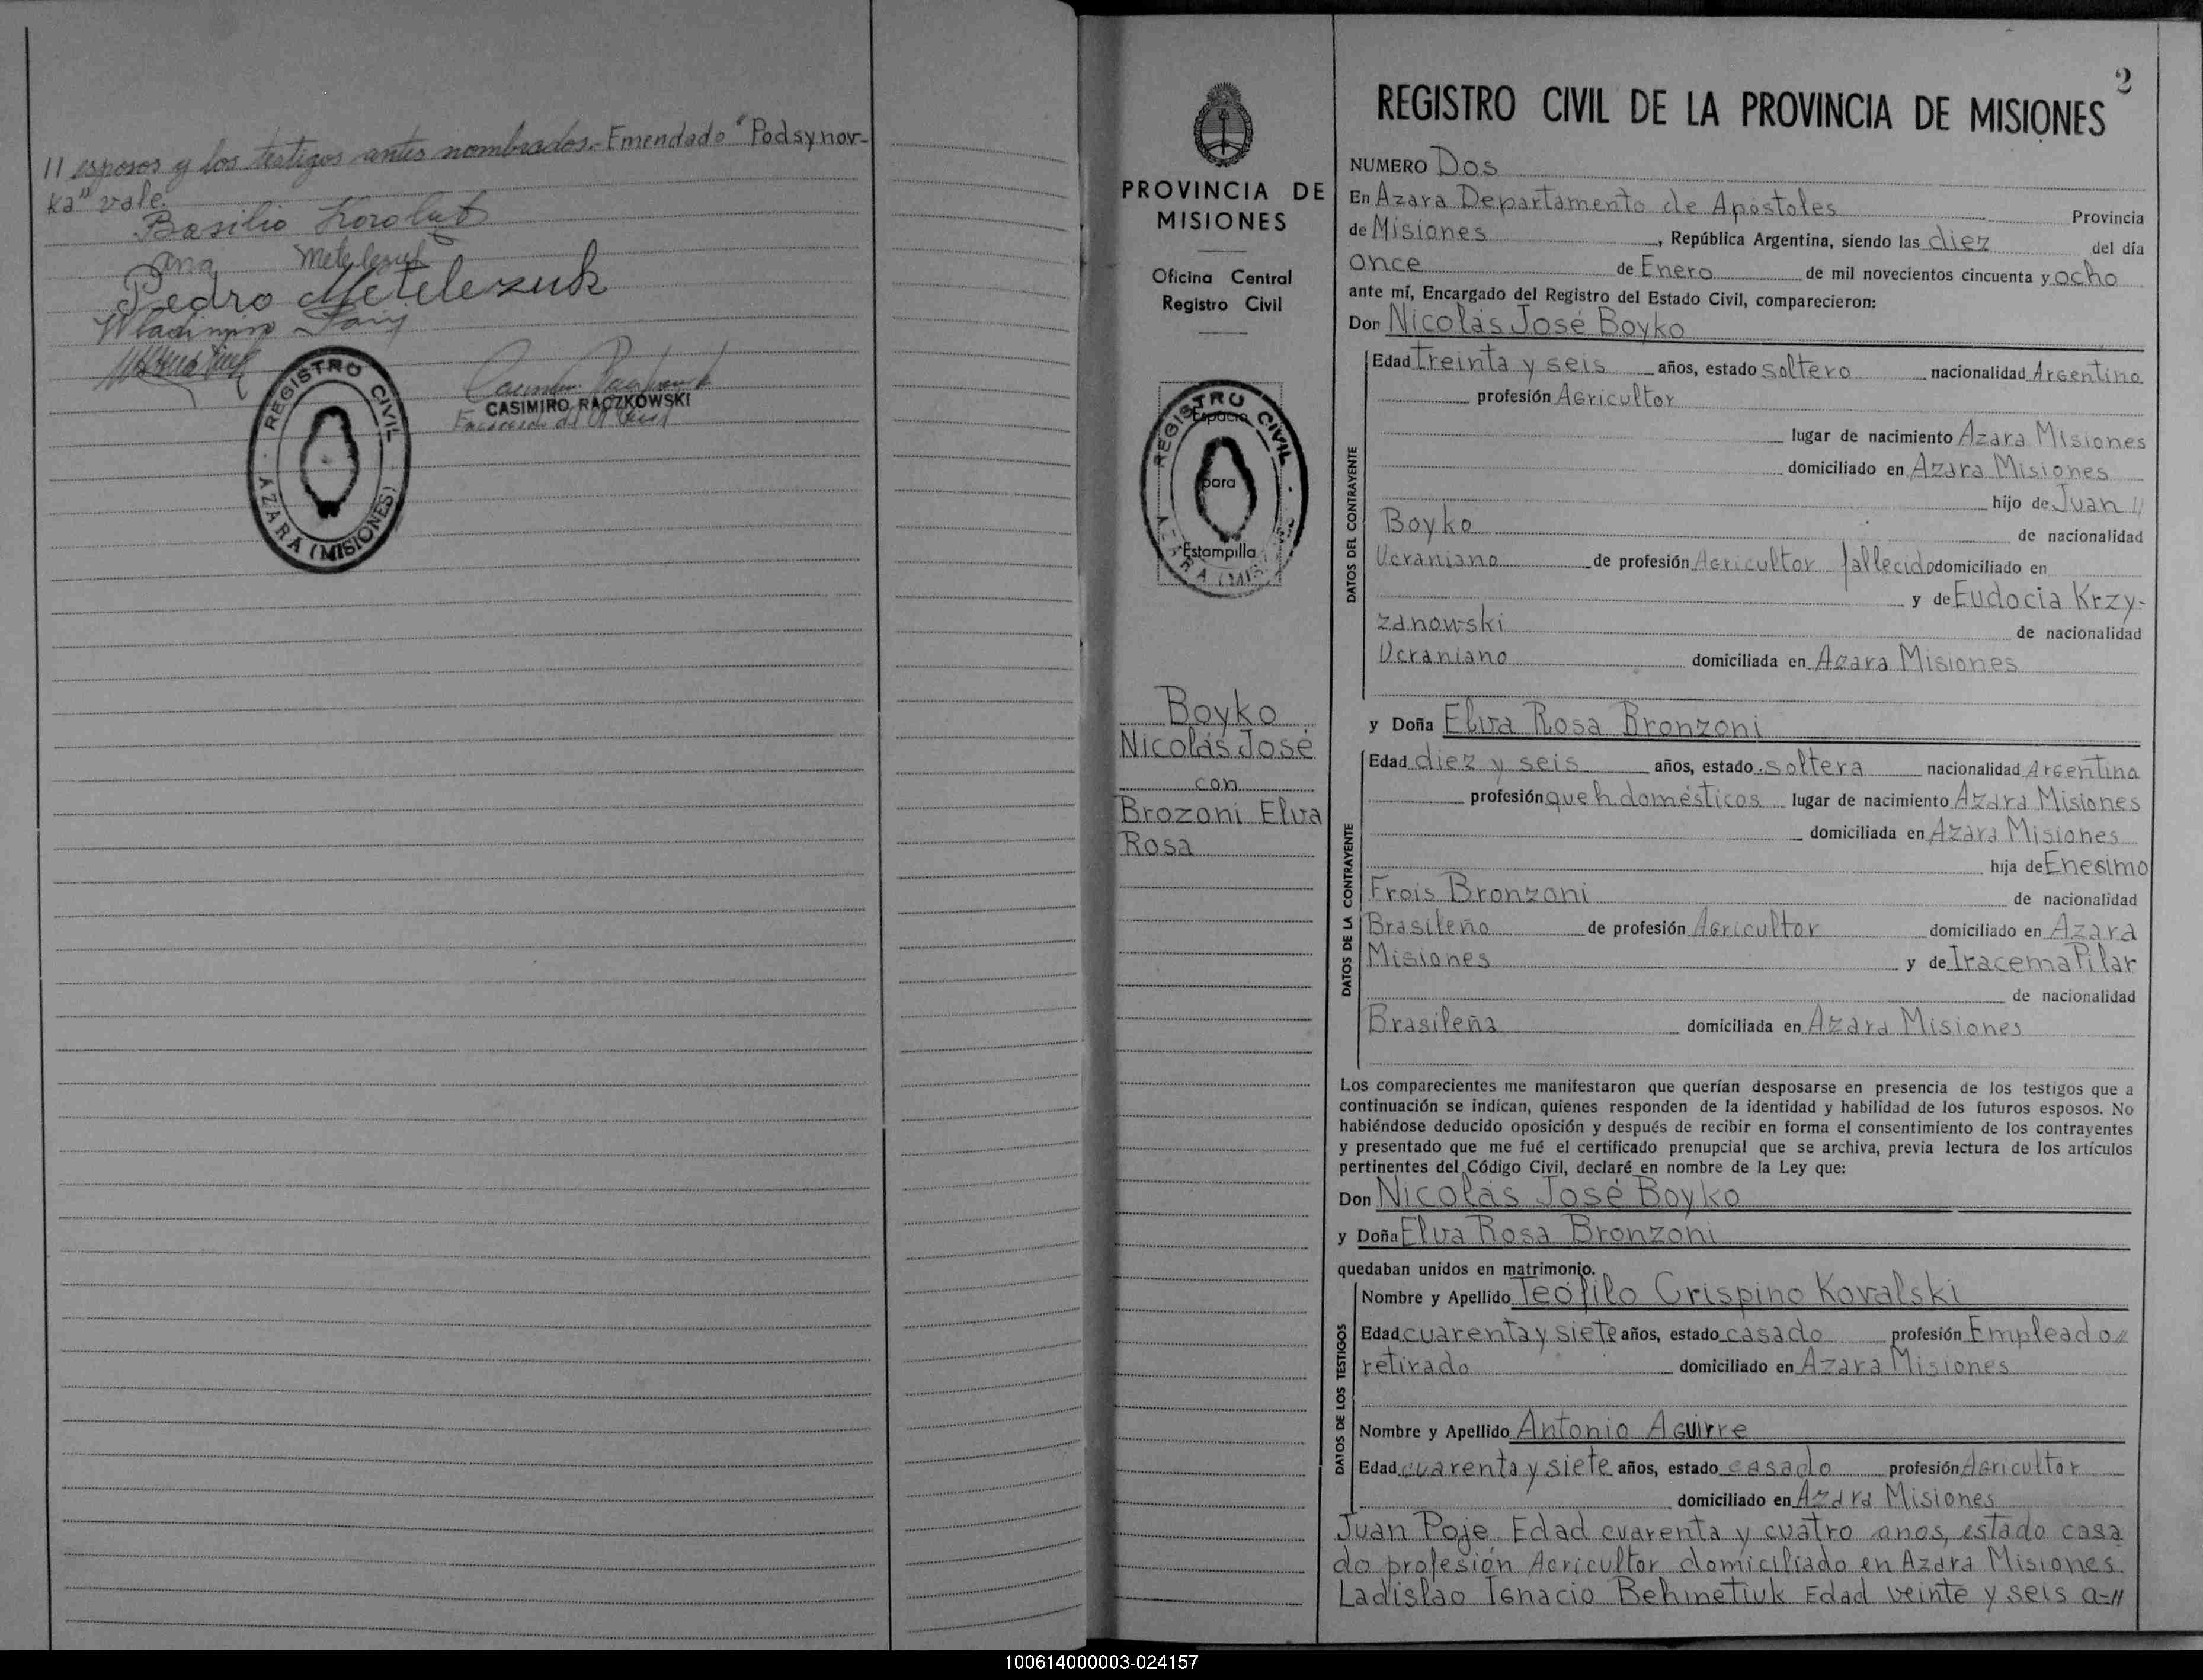 // esposos y los testigos antes nombrados.- Emendado "Podsynov-
ka" vale.
Basilio Korolut
Ana Metelezuk
Pedro Metelezuk
Wladimiro
REGISTRO CIVIL
AZARA (MISIONES)
CASIMIRO RACZKOWSKI
Encargado del R. Civil
PROVINCIA DE
MISIONES
Oficina Central
Registro Civil
REGISTRO CIVIL
Espacio
para
Estampilla
AZARA (MIS
Boyko
Nicolás José
con
Brozoni Elva
Rosa
2
REGISTRO CIVIL DE LA PROVINCIA DE MISIONES
NUMERO Dos
En Azara Departamento de Apóstoles Provincia
de Misiones, República Argentina, siendo las diez del día
once de Enero de mil novecientos cincuenta y ocho
ante mí, Encargado del Registro del Estado Civil, comparecieron:
Don Nicolás José Boyko
DATOS DEL CONTRAYENTE
Edad Treinta y seis años, estado soltero nacionalidad Argentino
profesión Agricultor
lugar de nacimiento Azara Misiones
domiciliado en Azara Misiones
hijo de Juan //
Boyko de nacionalidad
Ucraniano de profesión Agricultor fallecido domiciliado en
y de Eudocia Krzy-
zanowski de nacionalidad
Ucraniano domiciliada en Azara Misiones
y Doña Elva Rosa Bronzoni
DATOS DE LA CONTRAYENTE
Edad diez y seis años, estado soltera nacionalidad Argentina
profesión queh. domésticos lugar de nacimiento Azara Misiones
domiciliada en Azara Misiones
hija de Enesimo
Frois Bronzoni de nacionalidad
Brasileño de profesión Agricultor domiciliado en Azara
Misiones y de Iracema Pilar
de nacionalidad
Brasileña domiciliada en Azara Misiones
Los comparecientes me manifestaron que querían desposarse en presencia de los testigos que a
continuación se indican, quienes responden de la identidad y habilidad de los futuros esposos. No
habiéndose deducido oposición y después de recibir en forma el consentimiento de los contrayentes
y presentado que me fué el certificado prenupcial que se archiva, previa lectura de los artículos
pertinentes del Código Civil, declaré en nombre de la Ley que:
Don Nicolás José Boyko
y Doña Elva Rosa Bronzoni
quedaban unidos en matrimonio.
DATOS DE LOS TESTIGOS
Nombre y Apellido Teófilo Crispino Kovalski
Edad cuarenta y siete años, estado casado profesión Empleado //
retirado domiciliado en Azara Misiones
Nombre y Apellido Antonio Aguirre
Edad cuarenta y siete años, estado casado profesión Agricultor
domiciliado en Azara Misiones
Juan Poje Edad cuarenta y cuatro anos, estado casa
do profesión Agricultor domiciliado en Azara Misiones
Ladislao Ignacio Behmetiuk Edad veinte y seis a-//
100614000003-024157